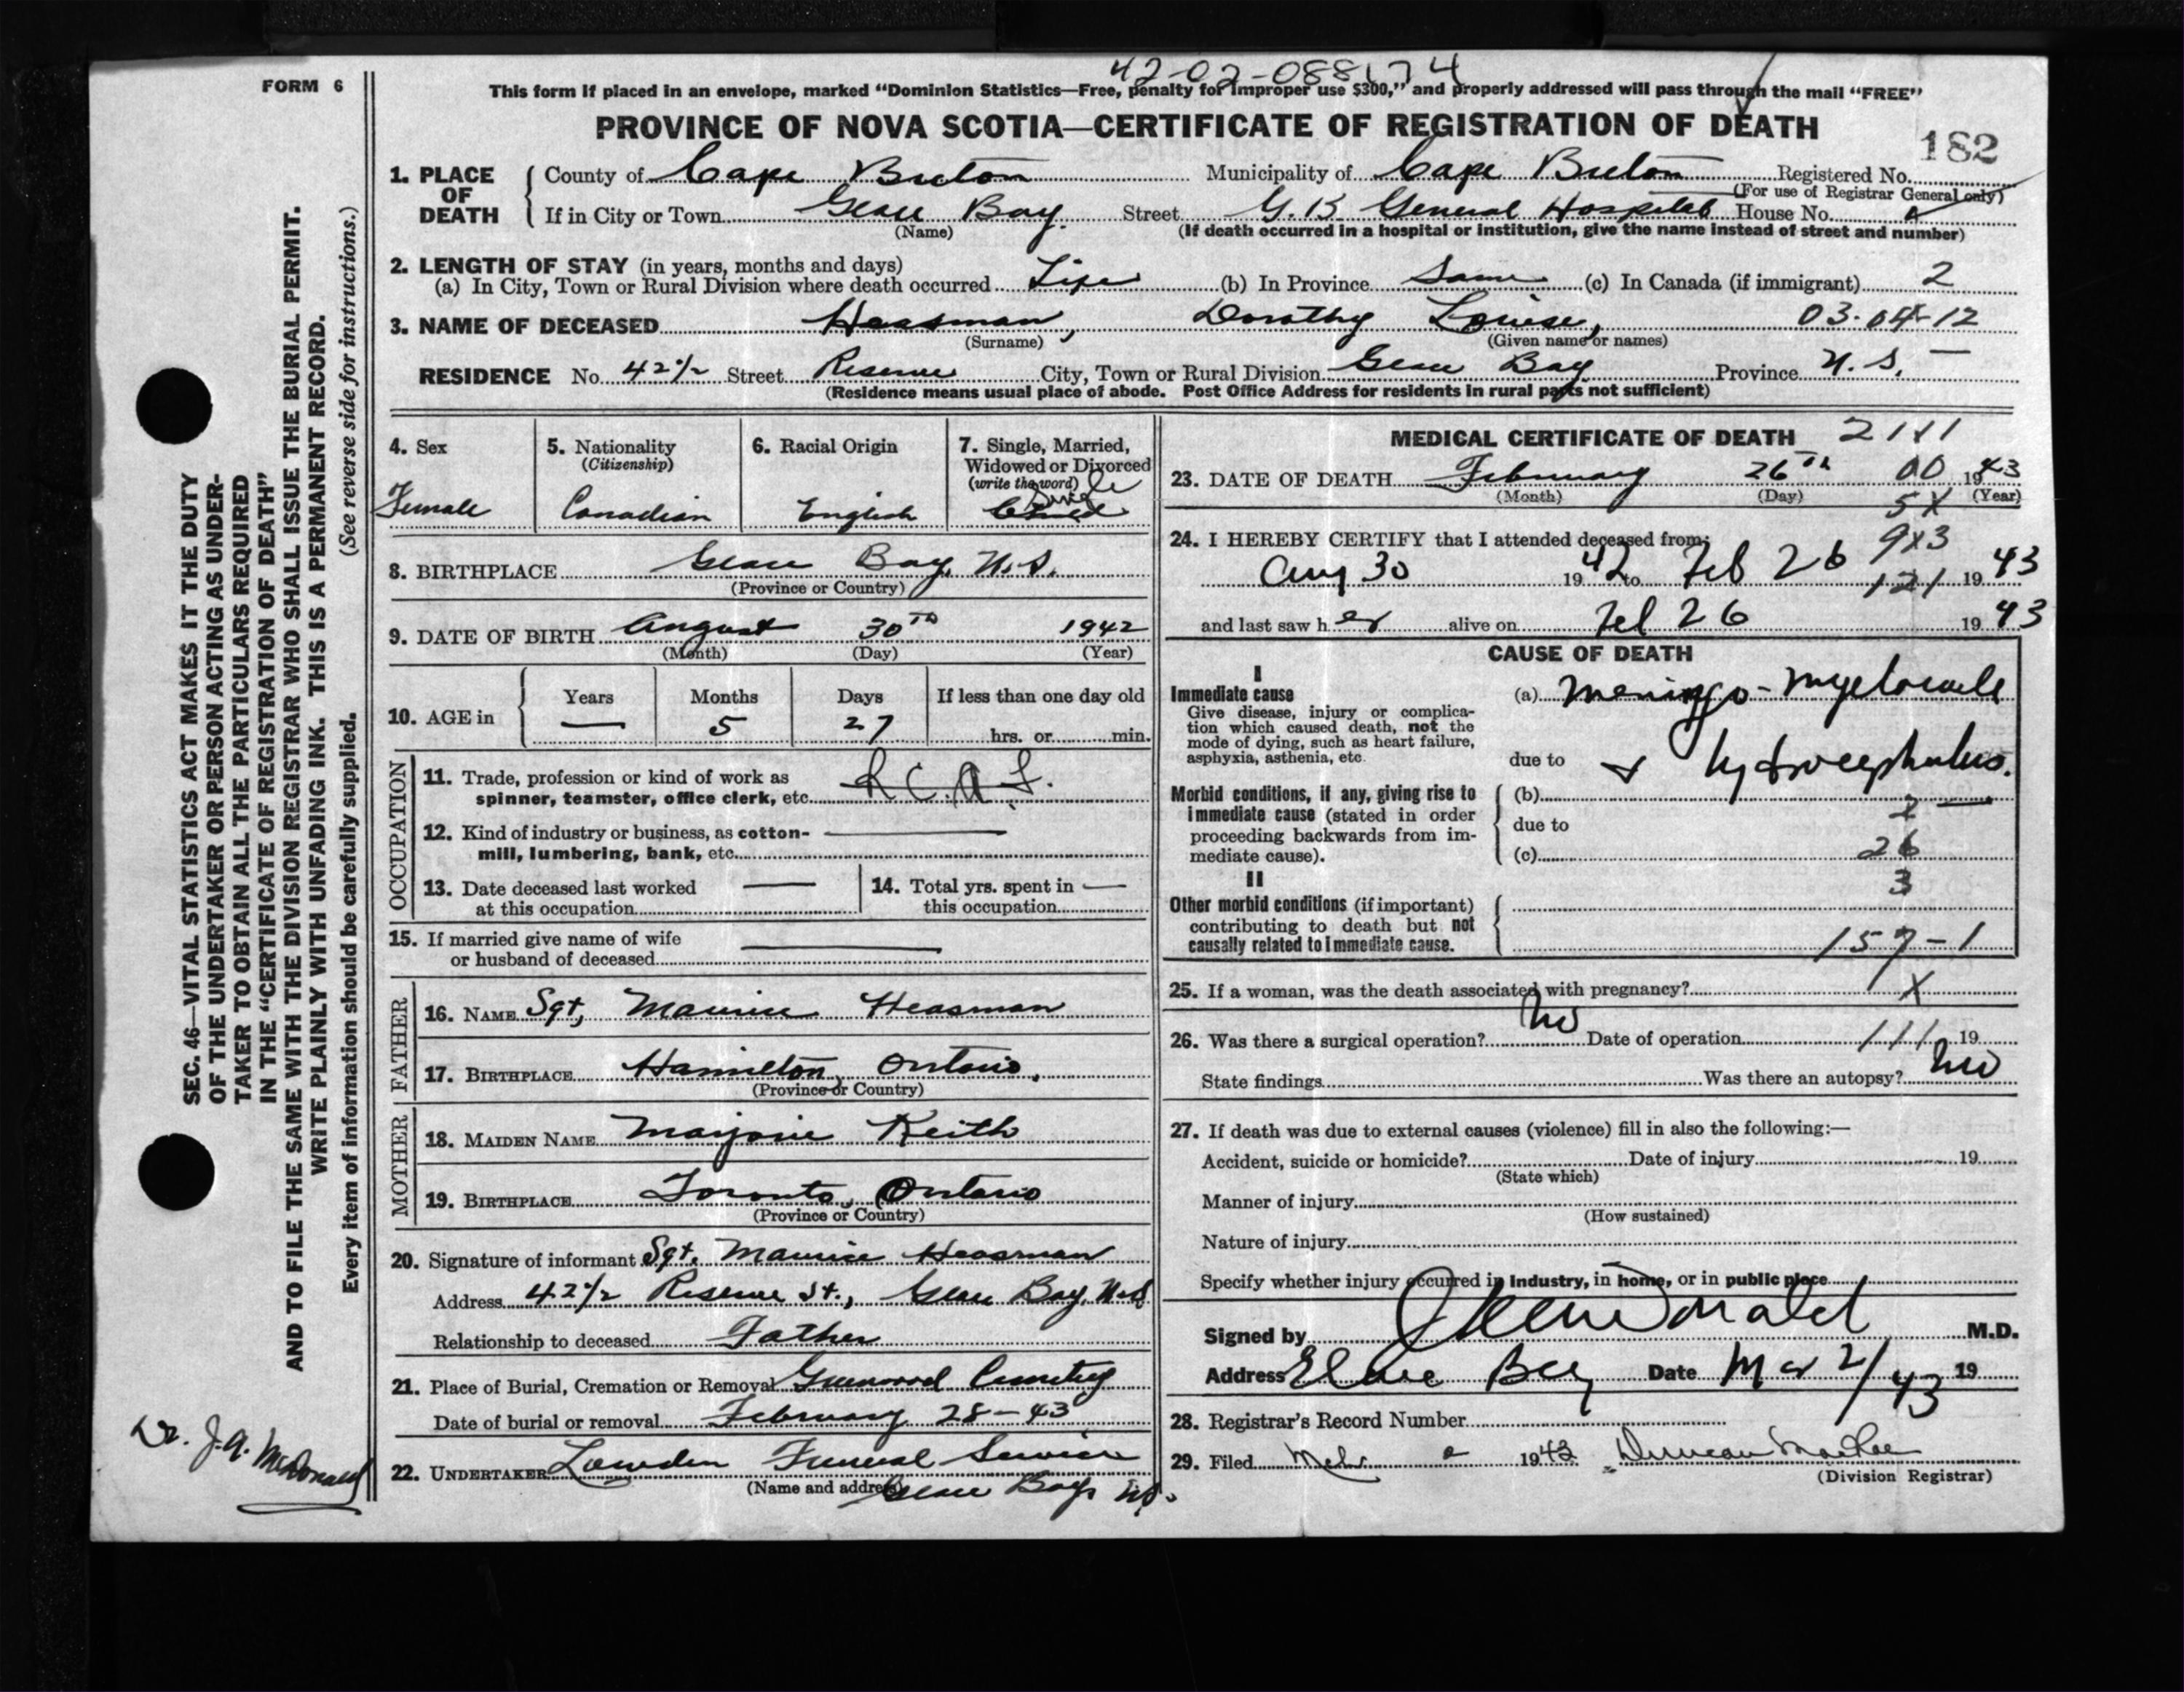 42-02-088174
FORM 6
This form if placed in an envelope, marked "Dominion Statistics—Free, penalty for improper use $300," and properly addressed will pass through the mail "FREE"
PROVINCE OF NOVA SCOTIA—CERTIFICATE OF REGISTRATION OF DEATH
182
1. PLACE OF DEATH
County of Cape Breton Municipality of Cape Breton Registered No.
(For use of Registrar General only)
If in City or Town Glace Bay. Street G.B. General Hospital House No.
(Name) (If death occurred in a hospital or institution, give the name instead of street and number)
2. LENGTH OF STAY (in years, months and days)
(a) In City, Town or Rural Division where death occurred Life (b) In Province Same (c) In Canada (if immigrant) 2
3. NAME OF DECEASED Heasman, Dorothy Louise, 03-04-12
(Surname) (Given name or names)
RESIDENCE No. 42½ Street Reserve City, Town or Rural Division Glace Bay Province N.S.
(Residence means usual place of abode. Post Office Address for residents in rural parts not sufficient)
4. Sex
Female
5. Nationality
(Citizenship)
Canadian
6. Racial Origin
English
7. Single, Married,
Widowed or Divorced
(write the word)
Single
8. BIRTHPLACE Glace Bay, N.S.
(Province or Country)
9. DATE OF BIRTH August 30th 1942
(Month) (Day) (Year)
10. AGE in
Years Months Days If less than one day old
— 5 27 hrs. or min.
OCCUPATION
11. Trade, profession or kind of work as
spinner, teamster, office clerk, etc. R.C.A.F.
12. Kind of industry or business, as cotton-
mill, lumbering, bank, etc.
13. Date deceased last worked
at this occupation
14. Total yrs. spent in
this occupation
15. If married give name of wife
or husband of deceased
FATHER
16. NAME Sgt, Maurice Heasman
17. BIRTHPLACE Hamilton, Ontario.
(Province or Country)
MOTHER
18. MAIDEN NAME Marjorie Keith
19. BIRTHPLACE Toronto, Ontario
(Province or Country)
20. Signature of informant Sgt. Maurice Heasman
Address 42½ Reserve St., Glace Bay, N.S.
Relationship to deceased Father
21. Place of Burial, Cremation or Removal Greenwood Cemetery
Date of burial or removal February 28-43
22. UNDERTAKER Lowden Funeral Service
(Name and address) Glace Bay, N.S.
MEDICAL CERTIFICATE OF DEATH
23. DATE OF DEATH February 26th 00 1943
(Month) (Day) (Year)
5X
24. I HEREBY CERTIFY that I attended deceased from;
9x3
Aug 30 1942 to Feb 26 121 1943
and last saw her alive on Feb 26 1943
CAUSE OF DEATH
I
Immediate cause
Give disease, injury or complica-
tion which caused death, not the
mode of dying, such as heart failure,
asphyxia, asthenia, etc.
(a) Meningo-myelocele
due to & hydrocephalus.
Morbid conditions, if any, giving rise to
immediate cause (stated in order
proceeding backwards from im-
mediate cause).
(b)
due to
(c) 26
3
II
Other morbid conditions (if important)
contributing to death but not
causally related to immediate cause.
157-1
25. If a woman, was the death associated with pregnancy? X
26. Was there a surgical operation? No Date of operation 111 19
State findings Was there an autopsy? No
27. If death was due to external causes (violence) fill in also the following:—
Accident, suicide or homicide? Date of injury 19
(State which)
Manner of injury
(How sustained)
Nature of injury
Specify whether injury occurred in Industry, in home, or in public place
Signed by M.D.
Address Glace Bay Date Mar 2/43 19
28. Registrar's Record Number
29. Filed 1943 Duncan MacRae
(Division Registrar)
SEC. 46—VITAL STATISTICS ACT MAKES IT THE DUTY
OF THE UNDERTAKER OR PERSON ACTING AS UNDER-
TAKER TO OBTAIN ALL THE PARTICULARS REQUIRED
IN THE "CERTIFICATE OF REGISTRATION OF DEATH"
AND TO FILE THE SAME WITH THE DIVISION REGISTRAR WHO SHALL ISSUE THE BURIAL PERMIT.
WRITE PLAINLY WITH UNFADING INK. THIS IS A PERMANENT RECORD.
Every item of information should be carefully supplied. (See reverse side for instructions.)
Dr. J.A. McDonald